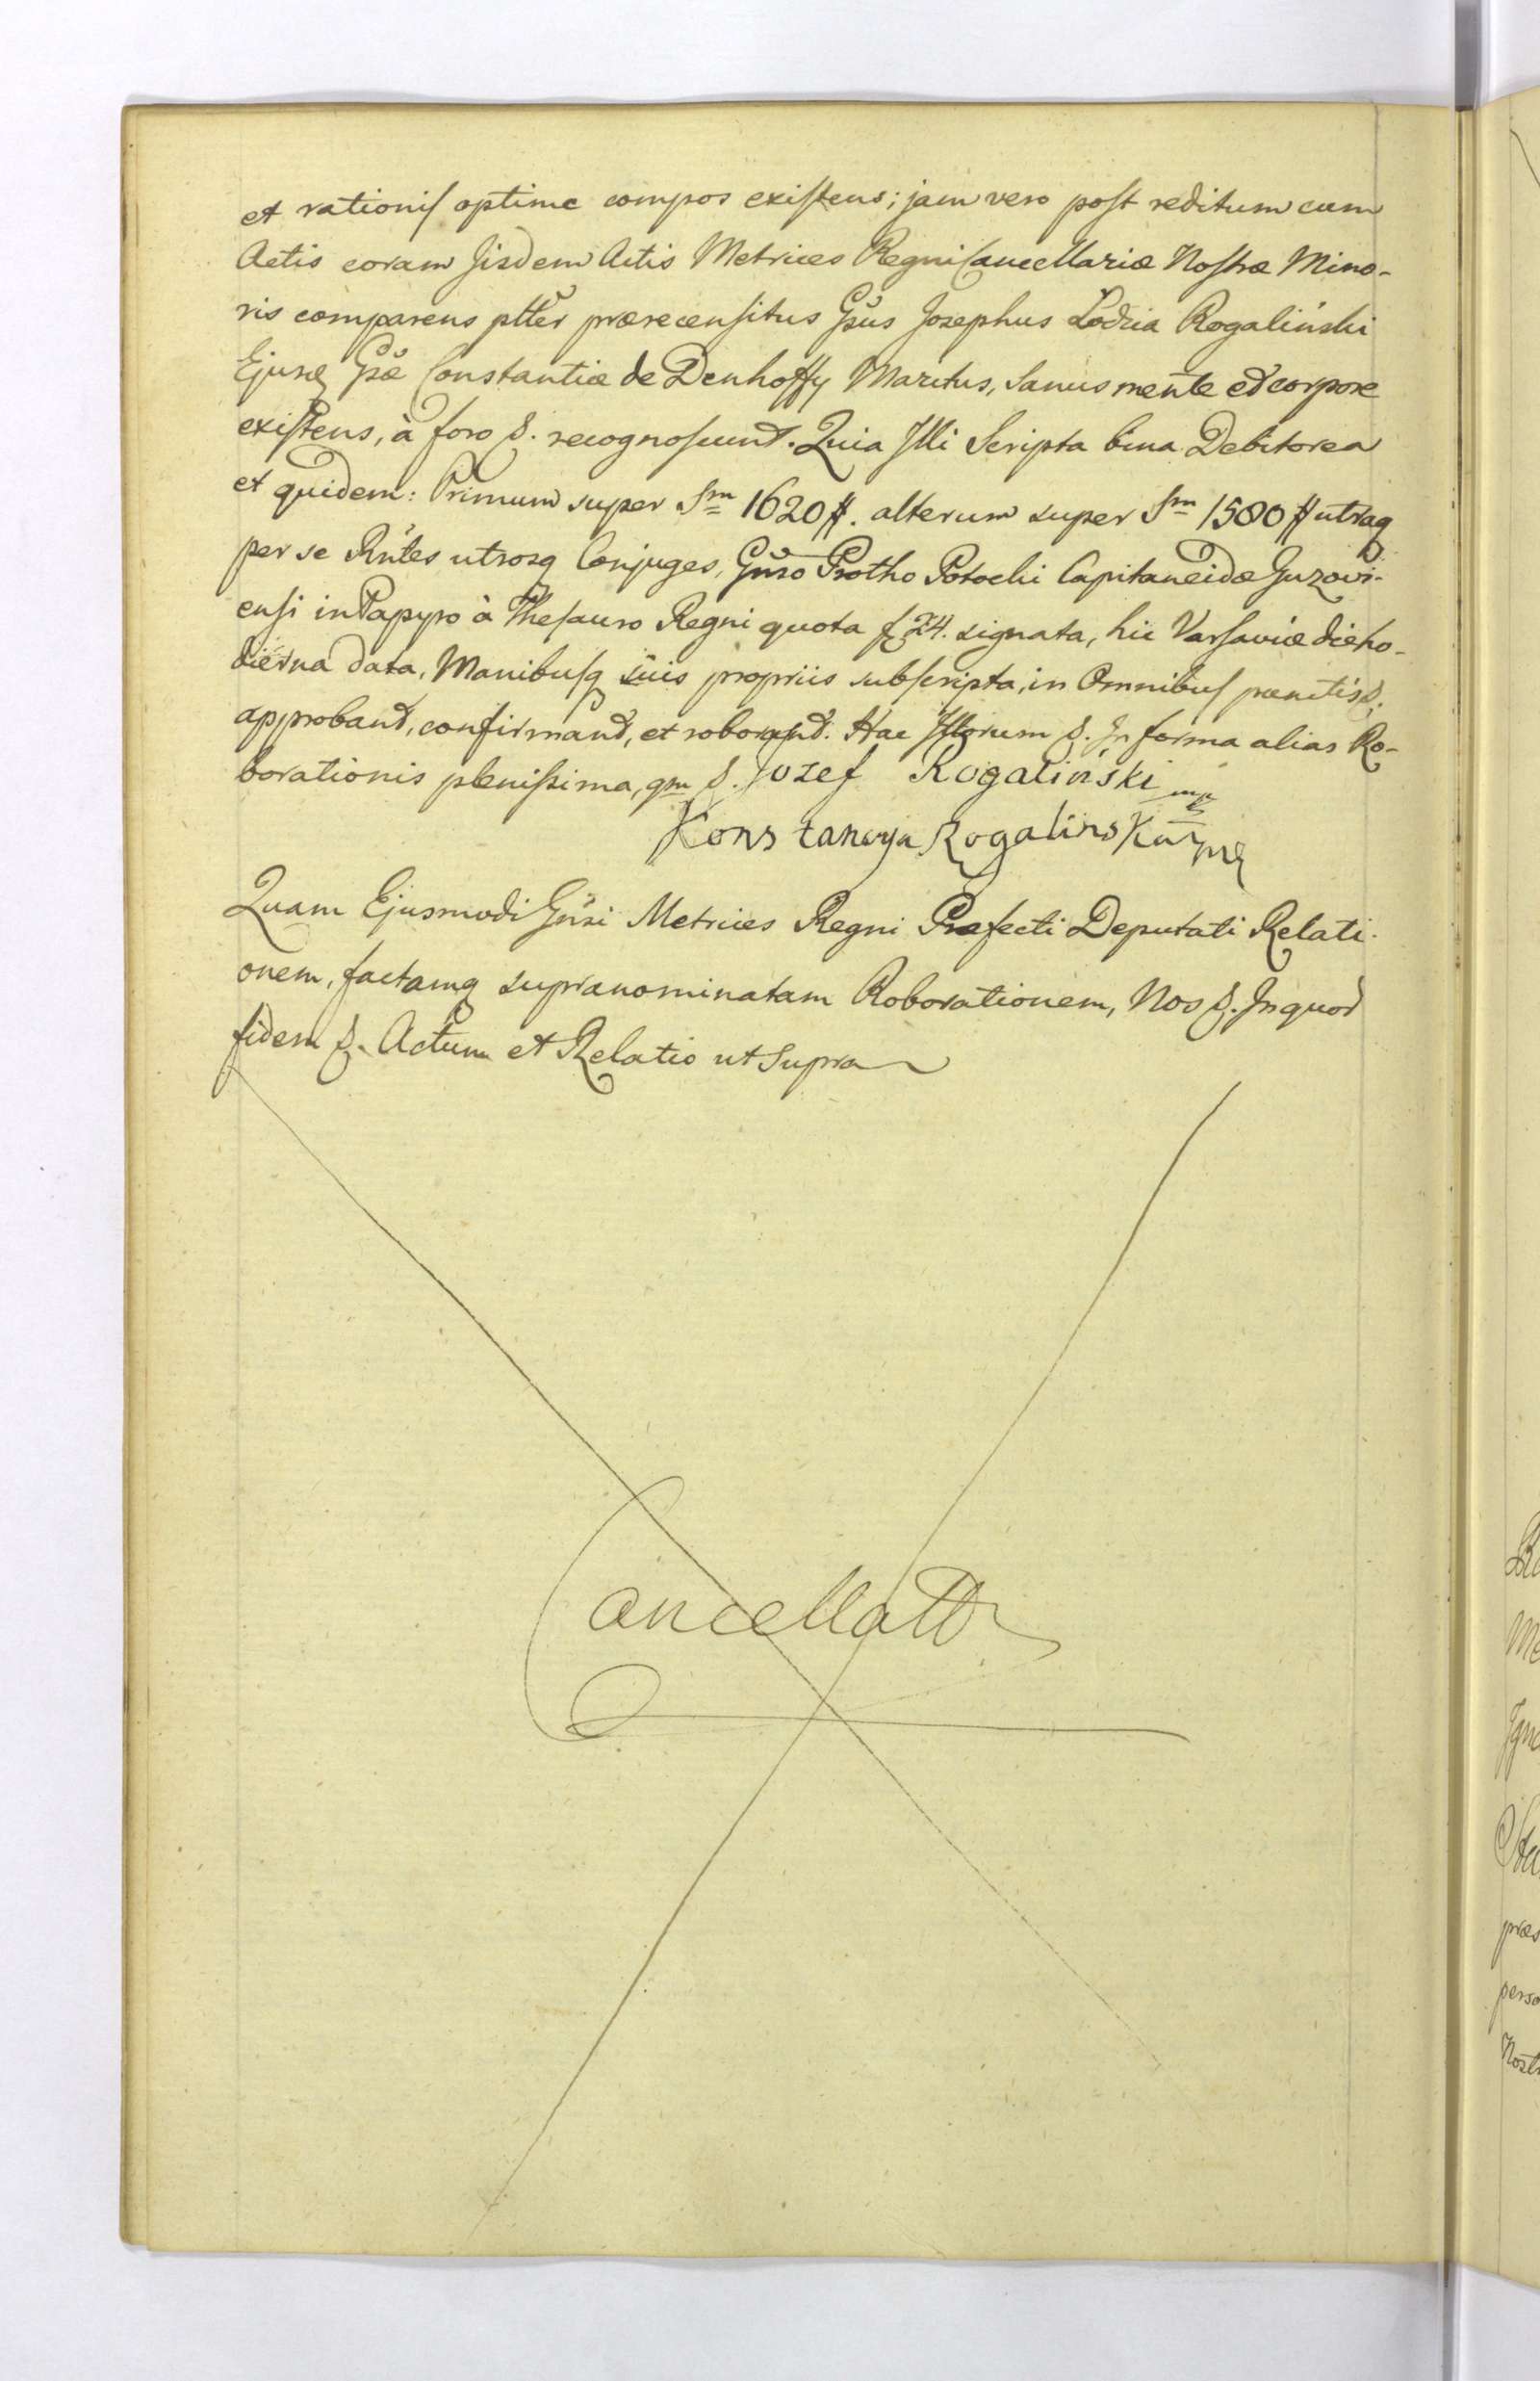 et rationis optime compos existens; jam vero post reditum cum
Actis coram Iisdem Actis Metrices Regni Cancellariæ Nostræ Mino-
ris comparens pttêr prærecensitus Gsûs Josephus Lodzia Rogaliński
Ejusq Gsæ Constantiæ de Denhoffy Maritus, Sanus mente et corpore
existens, à foro &. recognoscund. Quia Illi Scripta bina Debitorea
et quidem: Primum super Sm 1620 #. alterum super Sm 1580 # utraq
per se Rntes utrosq Conjuges, Gnso Protho Potocki Capitaneidæ Guzovi-
ensi in Papyro à Thesauro Regni quota f 24. signata, hic Varsaviæ die ho-
dierna data, Manibusq suis propriis subscripta, in Omnibus punctis &.
approband, confirmand, et roborand. Hac Illorum &. In forma alias Ro-
borationis plenissima, qm &. Jozef Rogaliński mp
Konstancya Rogalinska mp
Quam Ejusmodi Gnsi Metrices Regni Præfecti Deputati Relati-
onem, factamq supranominatam Roborationem, Nos &. In quor
fidem &. Actum et Relatio ut Supra
Cancellatt